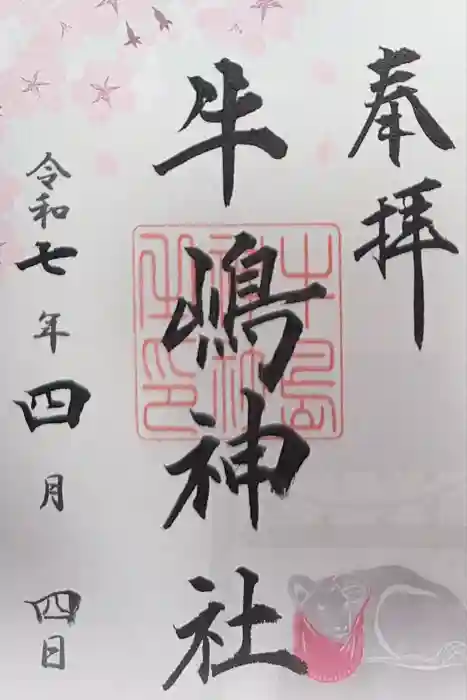 奉拝
牛嶋神社
牛嶋神社之印
令和七年四月四日